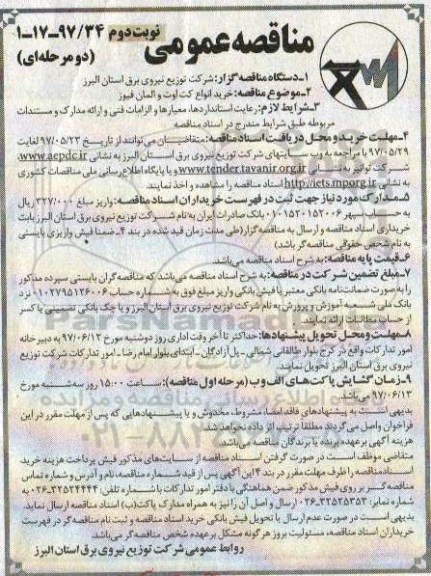 مناقصه عمومی
نوبت دوم ۹۷/۳۴-۱۷-۱
(دو مرحله‌ای)
۱-دستگاه مناقصه گزار: شرکت توزیع نیروی برق استان البرز
۲-موضوع مناقصه: خرید انواع کت اوت و المان فیوز
۳-شرایط لازم: رعایت استانداردها، معیارها و الزامات فنی و ارائه مدارک و مستندات
مربوطه طبق شرایط مندرج در اسناد مناقصه
۴-مهلت خرید و محل دریافت اسناد مناقصه: متقاضیان می‌توانند از تاریخ ۹۷/۰۵/۲۳ لغایت
۹۷/۰۵/۲۹ با مراجعه به وب سایتهای شرکت توزیع نیروی برق استان البرز به نشانی www.aepdc.ir،
شرکت توانیر به نشانی www.tender.tavanir.org.ir و یا پایگاه اطلاع رسانی ملی مناقصات کشوری
به نشانی http://iets.mporg.ir اسناد مناقصه را مشاهده و اخذ نمایند.
۵-مدارک مورد نیاز جهت ثبت در فهرست خریداران اسناد مناقصه: واریز مبلغ ۳۲۷/۰۰۰ ریال
به حساب سپهر ۰۱۰۱۵۲۰۱۵۲۰۰۶ بانک صادرات ایران به نام شرکت توزیع نیروی برق استان البرز بابت
خریداری اسناد مناقصه و ارسال به مناقصه گزار (طی مدت زمان قید شده در بند ۴ـ ضمنا فیش واریزی بایستی
به نام شخص حقوقی مناقصه گر باشد)
۶-قیمت پایه مناقصه: به شرح اسناد مناقصه می‌باشد.
۷-مبلغ تضمین شرکت در مناقصه: به شرح اسناد مناقصه می‌باشد که مناقصه گران بایستی سپرده مذکور
را به صورت ضمانت‌نامه بانکی معتبر یا فیش بانکی واریز مبلغ فوق به شماره حساب ۰۱۰۲۷۹۵۱۳۶۰۰۶ نزد
بانک ملی شعبه آموزش و پرورش به نام شرکت توزیع نیروی برق استان البرز و یا چک بانکی تضمینی یا کسر
از حساب مطالبات ارائه نمایند.
۸-مهلت و محل تحویل پیشنهادها: حداکثر تا آخر وقت اداری روز دوشنبه مورخ ۹۷/۰۶/۱۲ به دبیرخانه
امور تدارکات واقع در کرج بلوار طالقانی شمالی - پل آزادگان - ابتدای بلوار امام رضا - امور تدارکات شرکت توزیع
نیروی برق استان البرز تحویل نمایند.
۹-زمان گشایش پاکت‌های الف و ب (مرحله اول مناقصه): ساعت ۱۵:۰۰ روز سه‌شنبه مورخ
۹۷/۰۶/۱۳ می‌باشد.
بدیهی است به پیشنهادهای فاقد امضاء، مشروط، مخدوش و یا پیشنهادهایی که پس از مهلت مقرر در این
فراخوان واصل می‌گردند مطلقا ترتیب اثر داده نخواهد شد.
هزینه آگهی بر عهده برنده یا برندگان مناقصه می‌باشد.
متقاضی موظف است در صورت گرفتن اسناد مناقصه از سایت‌های مذکور فیش پرداخت هزینه خرید
اسناد مناقصه را ظرف مهلت مقرر در بند ۴ این آگهی پس از قید شماره مناقصه، نام و آدرس و شماره تماس
مناقصه گر بر روی فیش مذکور ضمن هماهنگی با دفتر امور تدارکات با شماره تلفن: ۳۲۵۲۴۴۴۴-۰۲۶ به
شماره نمابر: ۳۲۵۲۵۳۵۳-۰۲۶ ارسال و اصل آن را نیز به همراه مدارک پاکت (ب) اسناد مناقصه ارسال نماید.
بدیهی است در صورت عدم ارسال یا تحویل فیش بانکی خرید اسناد مناقصه و ثبت نام مناقصه گر در فهرست
خریداران اسناد مناقصه، مسئولیت بروز هر گونه مشکل بر عهده شخص مناقصه گر می‌باشد.
روابط عمومی شرکت توزیع نیروی برق استان البرز